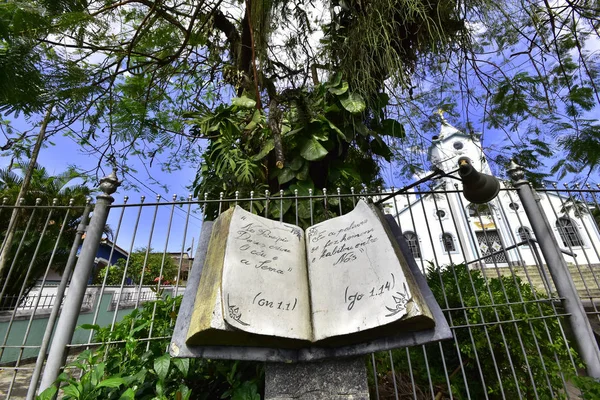 Deus criou
os Céus e
a Terra"
(Gn 1.1)
"E o Verbo
se fez homem
e habitou entre
Nós"
(Jo 1.14)